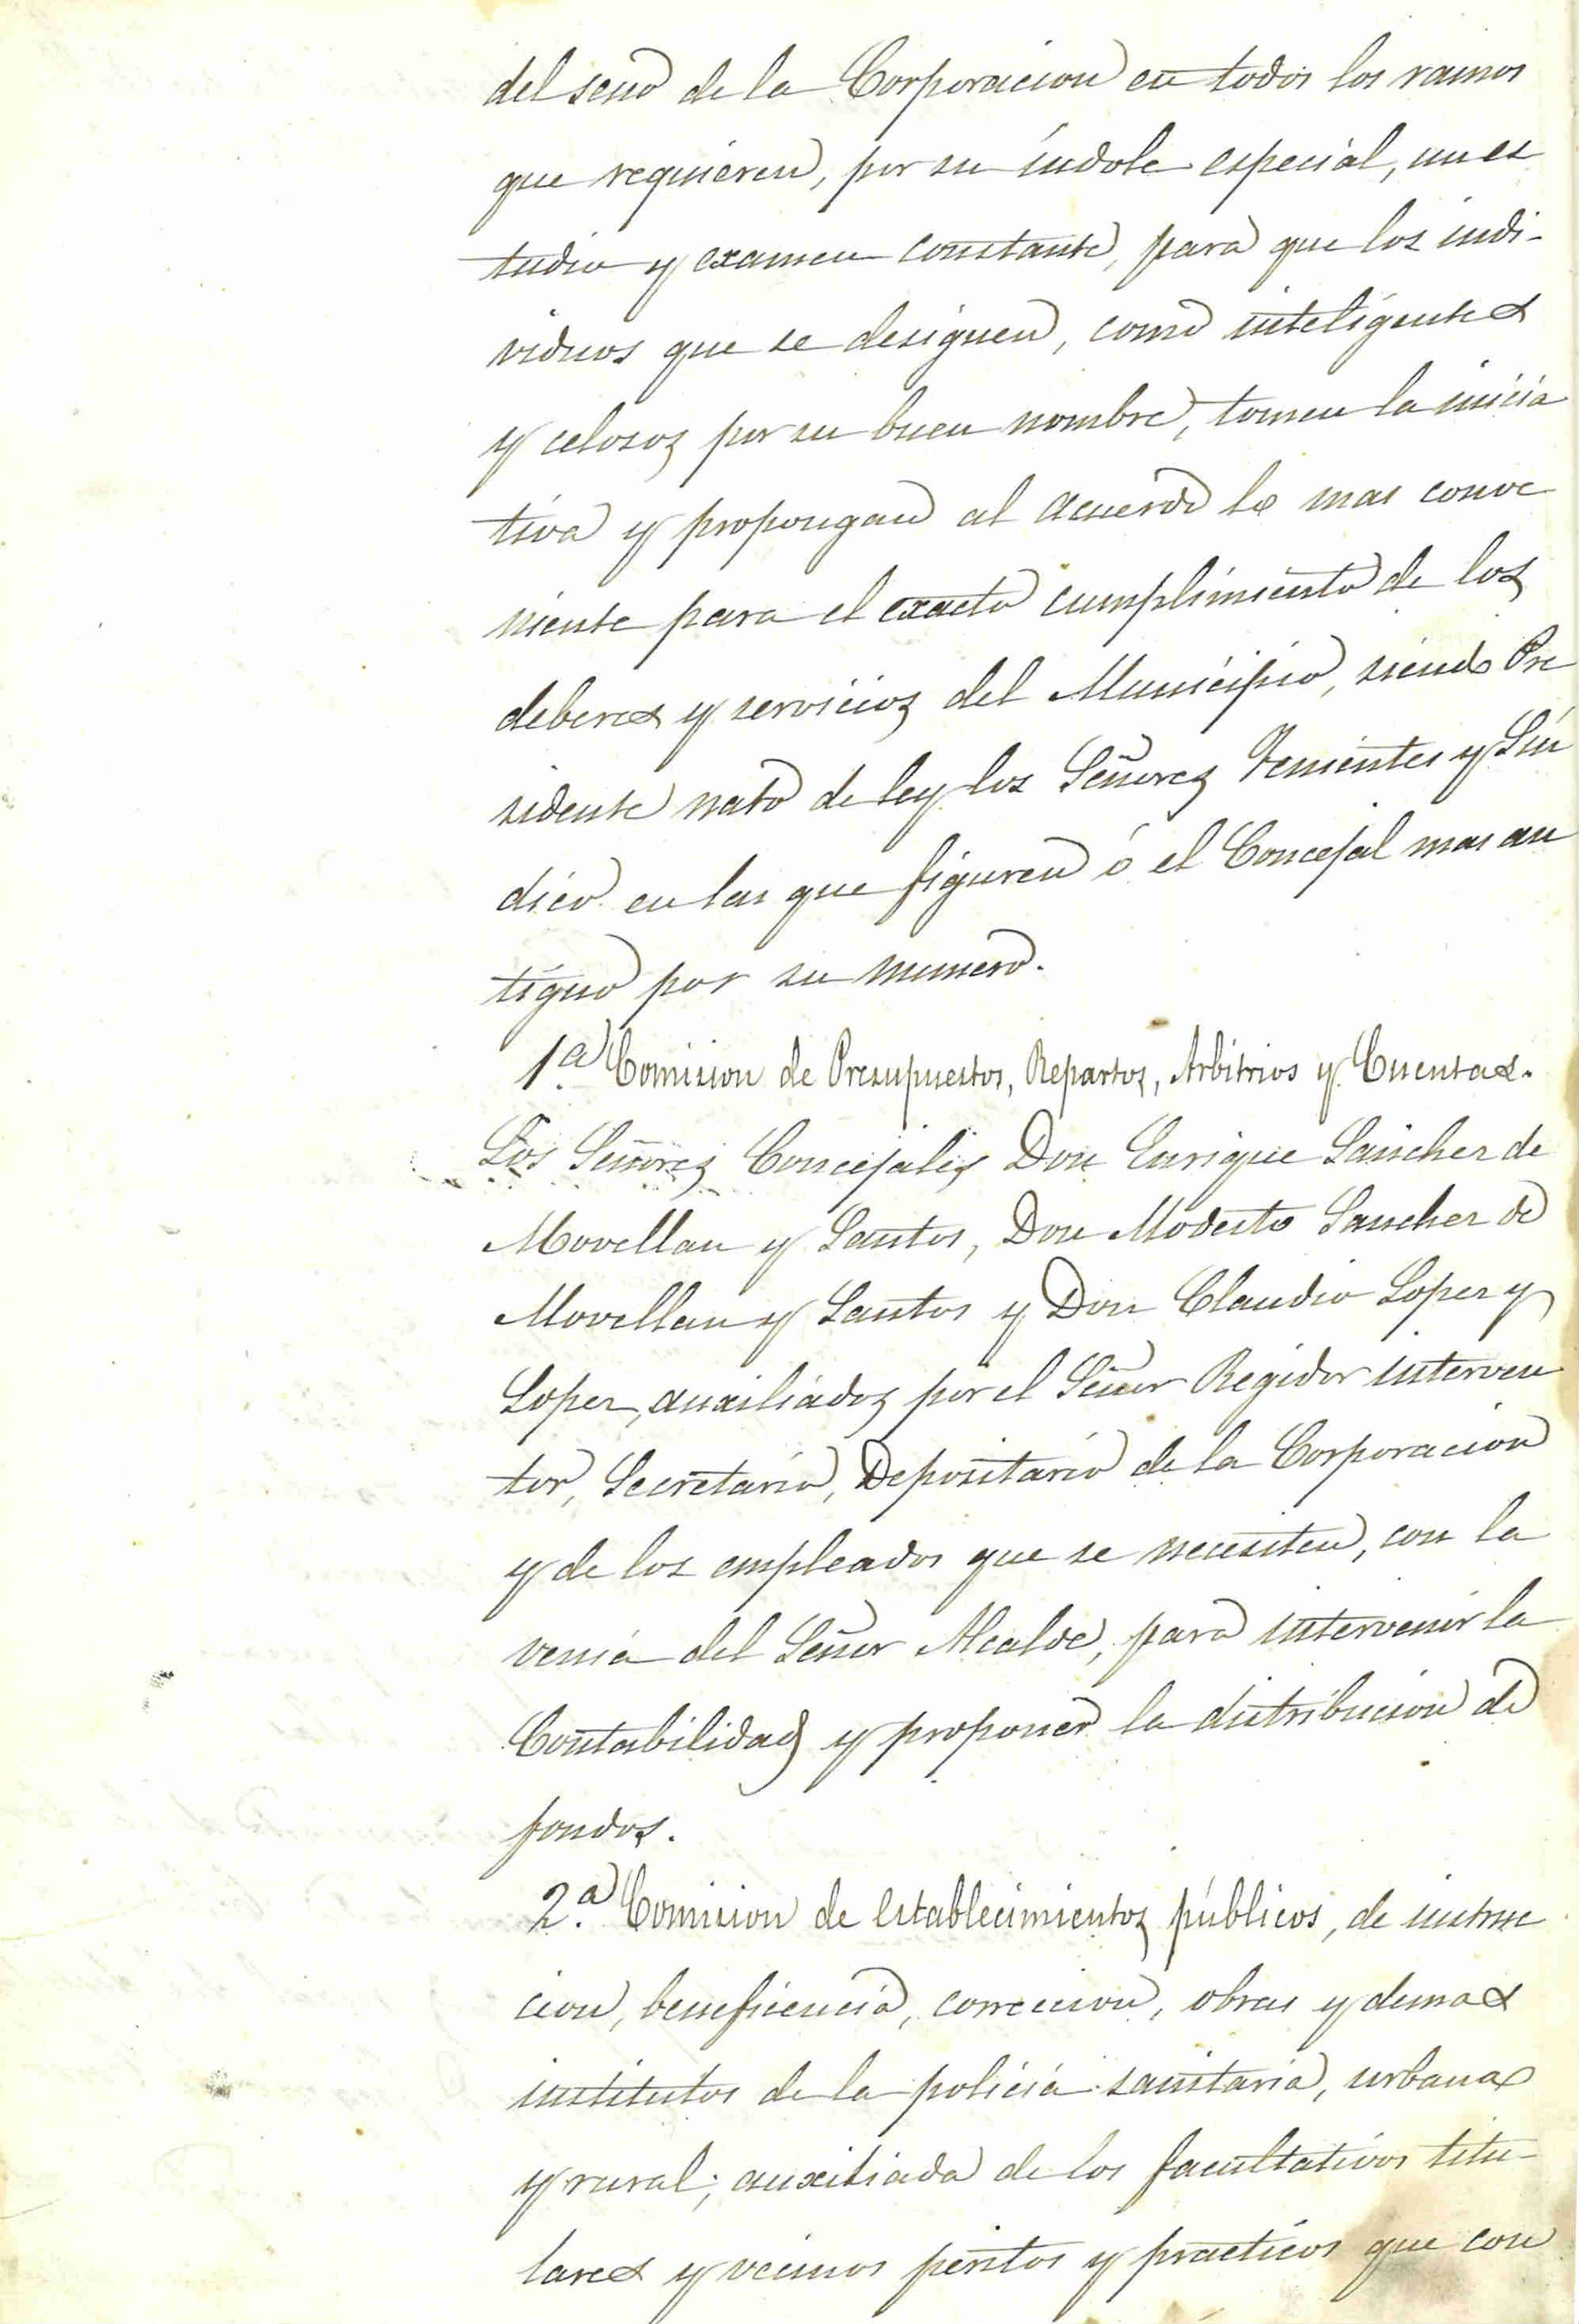 del seno de la Corporacion en todos los ramos
que requieren, por su índole especial, un es
tudio y examen constante, para que los indi-
viduos que se designen, como inteligentes
y celosos por su buen nombre, tomen la inicia
tiva y propongan al acuerdo lo mas conve
niente para el exacto cumplimiento de los
deberes y servicios del Municipio, siendo Pre
sidente nato de ley los Señores Tenientes y Sín
dico en las que figuren ó el Concejal mas an
tiguo por su numero.
1.ª Comision de Presupuestos, Repartos, Arbitrios y Cuentas.
Los Señores Concejales Don Enrique Sanchez de
Movellan y Santos, Don Modesto Sanchez de
Movellan y Santos y Don Claudio Lopez y
Lopez, auxiliados por el Señor Regidor interven
tor, Secretario, Depositario de la Corporacion
y de los empleados que se necesiten, con la
venia del Señor Alcalde, para intervenir la
Contabilidad y proponer la distribucion de
fondos.
2.ª Comision de establecimientos públicos, de instruc
cion, beneficencia, correccion, obras y demas
institutos de la policia sanitaria, urbana
y rural; auxiliada de los facultativos titu-
lares y vecinos peritos y practicos que con